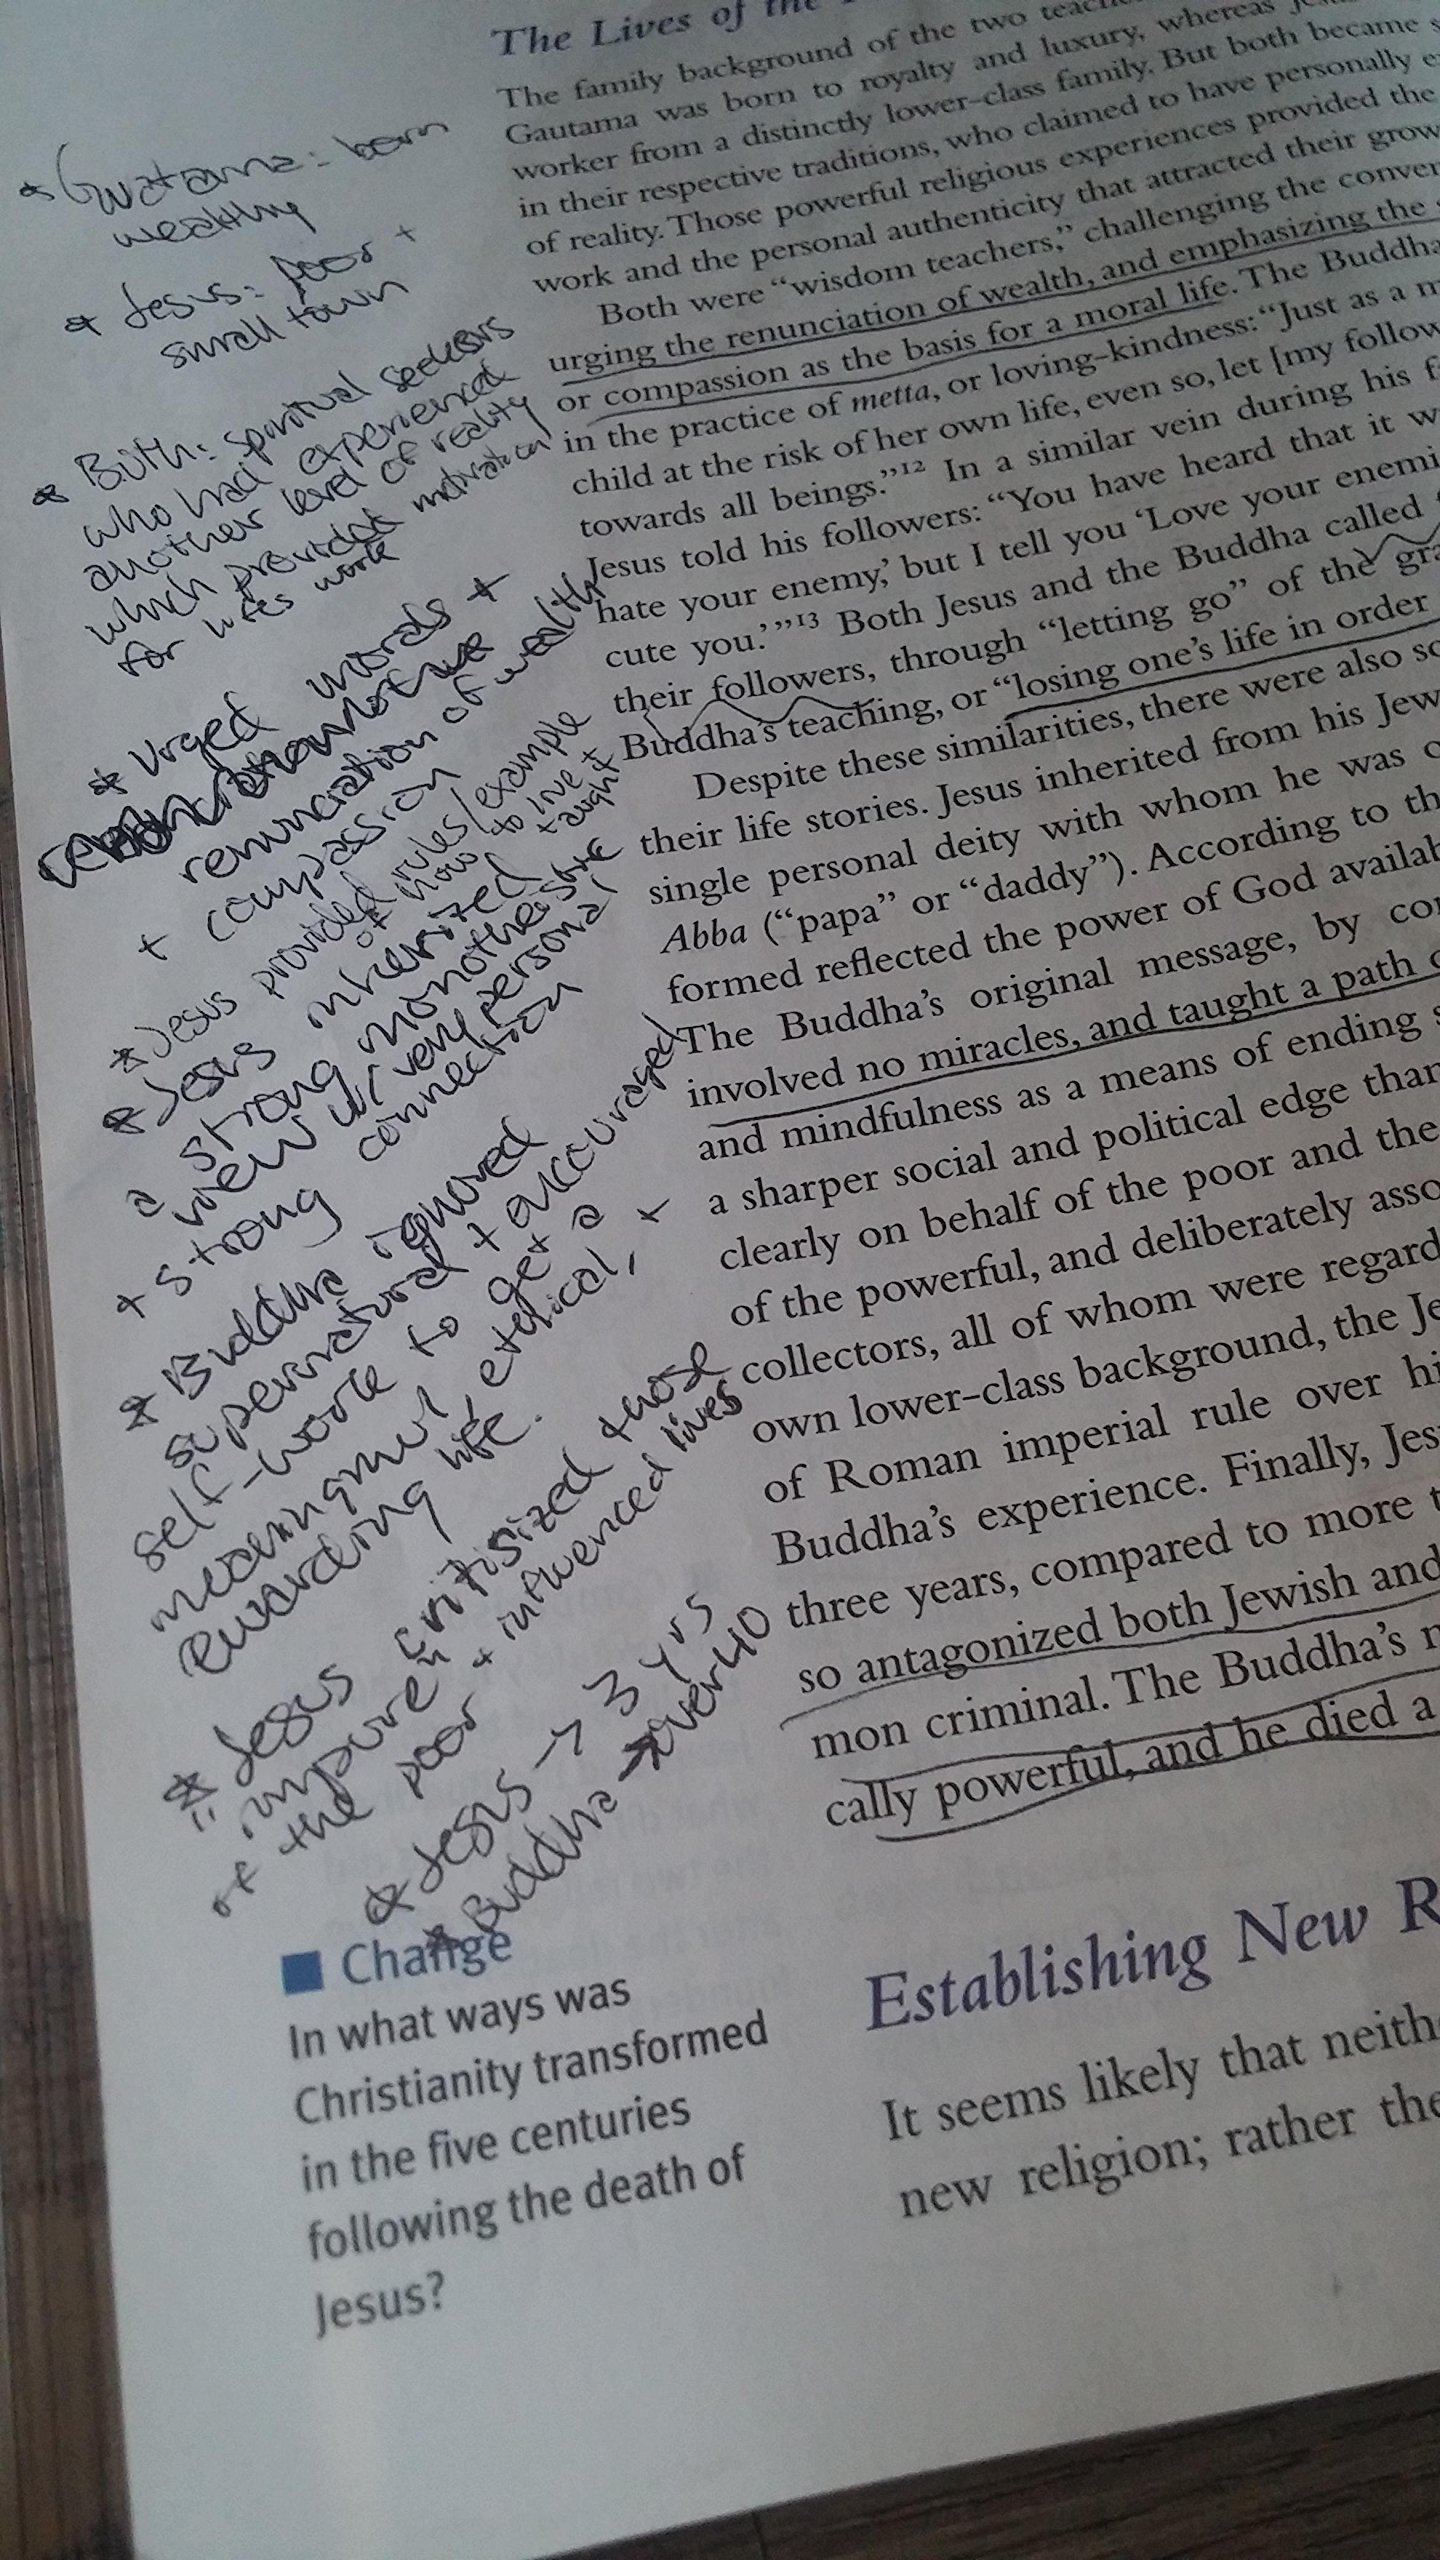 The Lives of the
The family background of the two
Gautama was born to royalty and luxury, whereas
worker from a distinctly lower-class family. But both became
in their respective traditions, who claimed to have personally
of reality. Those powerful religious experiences provided the
work and the personal authenticity that attracted their
Both were “wisdom teachers,” challenging the
urging the renunciation of wealth, and emphasizing the
or compassion as the basis for a moral life. The Buddha
in the practice of metta, or loving-kindness: “Just as a
child at the risk of her own life, even so, let [my
towards all beings.”12 In a similar vein during his
Jesus told his followers: “You have heard that it
hate your enemy,’ but I tell you ‘Love your
cute you.’”13 Both Jesus and the Buddha called
their followers, through “letting go” of the
Buddha’s teaching, or “losing one’s life in order
Despite these similarities, there were also
their life stories. Jesus inherited from his
single personal deity with whom he was
Abba (“papa” or “daddy”). According to
formed reflected the power of God
The Buddha’s original message, by
involved no miracles, and taught a path
and mindfulness as a means of ending
a sharper social and political edge than
clearly on behalf of the poor and the
of the powerful, and deliberately
collectors, all of whom were
own lower-class background, the
of Roman imperial rule over
Buddha’s experience. Finally,
three years, compared to more
so antagonized both Jewish and
mon criminal. The Buddha’s
cally powerful, and he died a
Establishing New
It seems likely that
new religion; rather
* Guatama: born
wealthy
* Jesus: poor +
small town
* Both: spiritual seekers
who had experienced
another level of reality
which provided motivation
for lifes work
* Urged morals +
renunciation of wealth
+ compassion
* Jesus provided rules/example
of how to live +
taught
* Jesus inherited
a strong monotheistic
view w/ very personal
+ strong connection
* Buddha ignored
supernatural + encouraged
self-work to get a
meaningful, ethical, +
rewarding life.
* Jesus critisized those
"impure"
of the poor + influenced lives
* Jesus → 3 yrs
* Buddha → over 40
Change
In what ways was
Christianity transformed
in the five centuries
following the death of
Jesus?